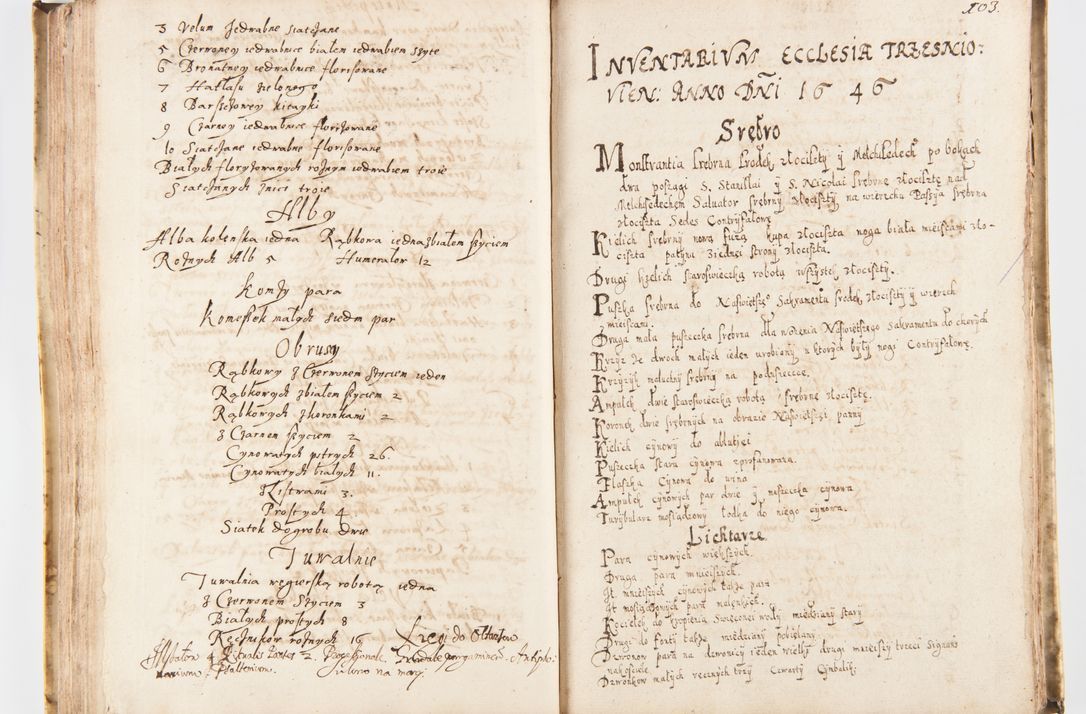 3 Velum Jedwabne siatczane
5 Czerwoney iedwabnice białem iedwabiem szyte
6 Bronatney iedwabnice florisowane
7 Hatłasu zielonego
8 Barszczowey kitayki
9 Czarney iedwabnice florisowane
10 Siatczane iedwabne florisowane
Białych floryzowanych roznym iedwabiem troie
Siatczanych troie
Alby
Alba kolenska iedna Rąbkowa iedna z białem szyciem
Roznych Alb 5 Humerałow 12
Komży para
Komeszek małych siedm par
Obrusy
Rąbkowy z Czerwonem szyciem ieden
Rąbkowych z białem szyciem 2
Rąbkowych z koronkami 2
z Czarnem szyciem 2
Cynowatych pstrych 26
Cynowatych białych 11
z listwami 3.
Prostych 4
Siatek do grobu dwie
Tuwalnie
Tuwalnia węgierską robotą iedna
z Czerwonem Szyciem 3
Białych prostych 8
Ręcznikow roznych 16 do Ołtarzow
4 2. Processionale. Gradale pergaminowe. Antipho:
narium Psalterium. na mary.
103.
INVENTARIVM ECCLESIÆ TRZESNIO:
VIEN: ANNO DÑI 1646
Srebro
Monstrantia srebrna srodek złocisty y Melchisedech po bokach
dwa posągi S. Stanislai y S. Nicolai srebrne złociste nad
Melchisedechem Saluator srebrny złocisty, na wierzchu Passyia srebrna
złocista Sedes Contryfałowe
Kielich srebrny nową fuzą kupa złocista noga biała mieiscami zło-
cista patyna z iedney strony złocista.
Drugi kielich staroswiecką robotą wszystek złocisty.
Puszka srebrna do Naswiętszeº Sakramentu srodek złocisty y wierzch
mieiscami.
Druga mała puszeczka srebrna dla nozenia Naswiętszego Sakramentu do chorych
Krzyze dwoch małych ieden urobiony u ktorych były nogi Contryfałowe.
Krzyzyk malutny srebrny na poduszecce.
Ampułek dwie staroswiecką robotą srebrne złociste.
Koronek dwie srebrnych na obrazie Naswietszei panny
Kielich cynowy do abluciei
Puszeczka stara cynowa zprofanowana.
Flaszka Cynowa do wina
Ampułek cynowych par dwie y naszeczka cynowa
Turybularz mosiądzowy łodka do niego cynowa.
Lichtarze
Para cynowych większych.
Druga para mnieiszych.
It. mnieiszych cynowych także para
It. mosiądzowych para malenkich.
Kociełek do kropienia Swięconei wody miedziany stary
Drugi do fonti także miedziany pobielany
Dzwonow para na dzwonicy ieden wielki drugi mnieiszy trzeci Signano
na kosciele
Dzwonkow małych ręcznych trzy Czwarty Cymbalik.